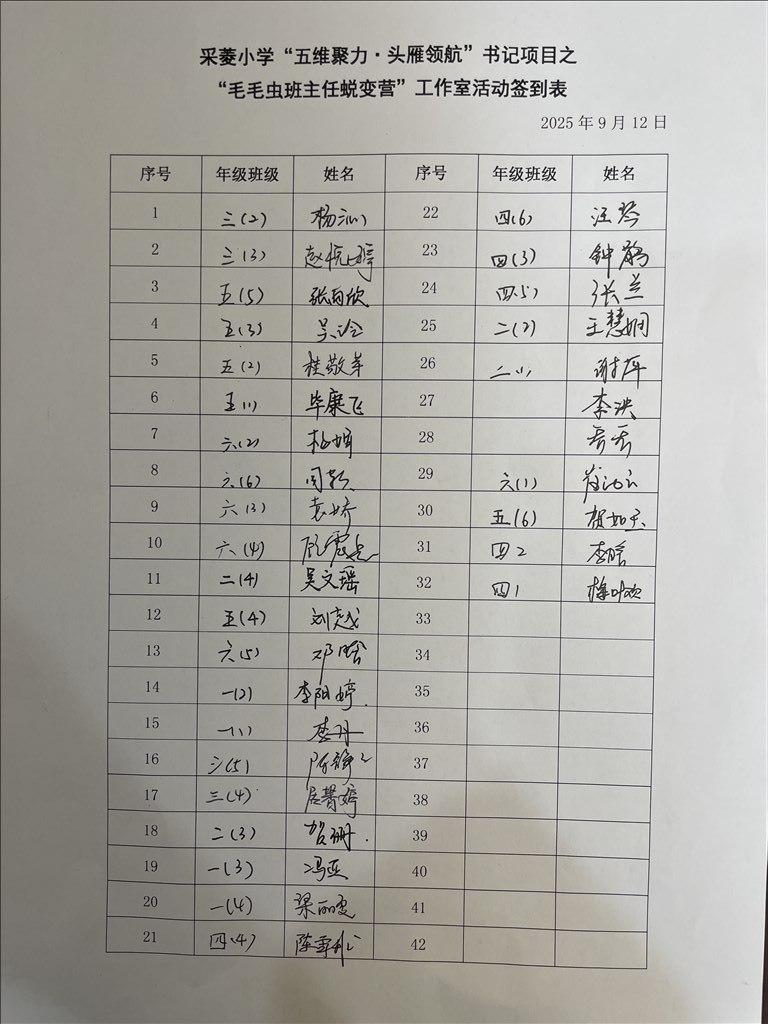 采菱小学“五维聚力·头雁领航”书记项目之
“毛毛虫班主任蜕变营”工作室活动签到表
2025年9月12日
序号 年级班级 姓名 序号 年级班级 姓名
1 三(2) 杨沁 22 四(6) 汪琴
2 三(3) 23 四(3) 钟鹃
3 五(5) 张雨欣 24 四(5) 张兰
4 五(3) 吴冷 25 二(2) 王慧娴
5 五(2) 桂敬苹 26 二(1) 谢萍
6 五(1) 毕康飞 27 李洪
7 六(2) 28
8 六(6) 周颖 29 六(1)
9 六(3) 袁娇 30 五(6) 贺如玉
10 六(4) 31 四2 李晗
11 二(4) 吴文瑶 32 四1 梅叶欢
12 五(4) 刘克成 33
13 六(5) 邓晗 34
14 一(2) 李阳婷 35
15 一(1) 李丹 36
16 三(5) 陈静 37
17 三(4) 居馨婷 38
18 二(3) 贺珊 39
19 一(3) 冯亚 40
20 一(4) 梁丽雯 41
21 四(4) 陈雪 42